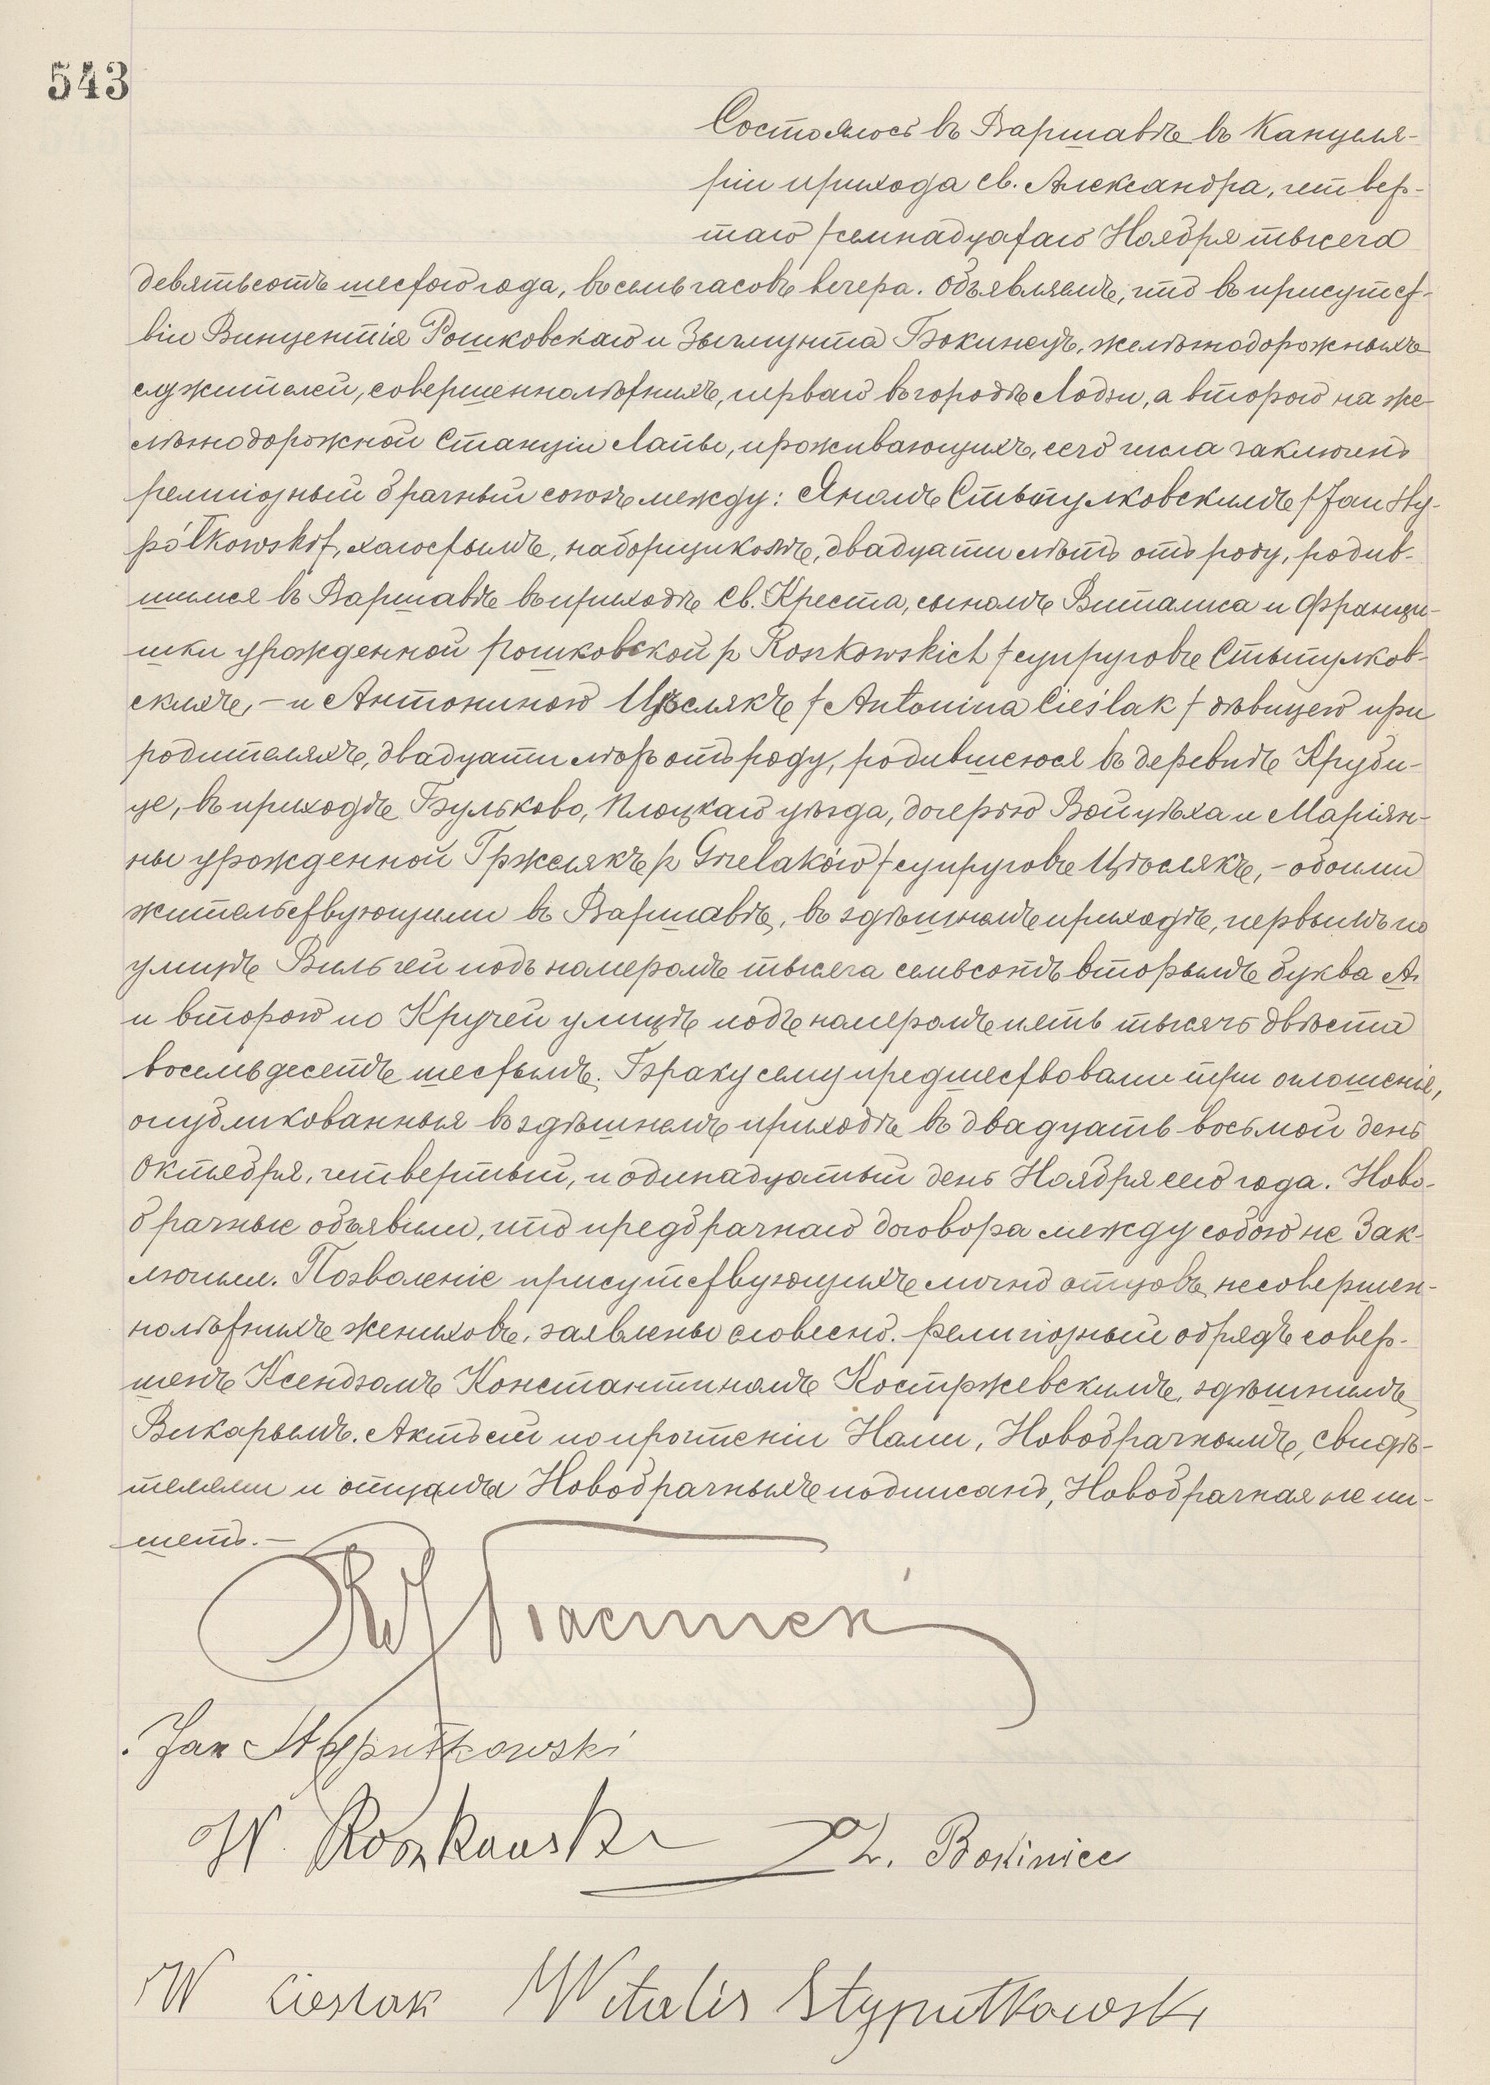 543
Состоялось въ Варшавѣ въ Канцеля-
ріи прихода св. Александра, четвер-
таго /семнадцатаго Ноября тысяча
девятьсотъ шестого года, въ семь часовъ вечера. Объявляемъ, что въ присутст-
віи Винцентія Рошковскаго и Зыгмунта Бокинецъ, желѣзнодорожныхъ
служителей, совершеннолѣтнихъ, перваго въ городѣ Лодзи, а второго на же-
лѣзнодорожной Станціи Лапы, проживающихъ, сего числа заключенъ
религіозный брачный союзъ между: Яномъ Стыпулковскимъ /Jan Sty-
półkowski/, холостымъ, наборщикомъ, двадцати лѣтъ отъ роду, родив-
шимся въ Варшавѣ въ приходѣ Св. Креста, сыномъ Виталиса и Франци-
шки урожденной Рошковской z Roszkowskich / супруговъ Стыпулков-
скихъ, – и Антониною Цѣслякъ / Antonina Cieślak / дѣвицею при
родителяхъ, двадцати лѣтъ отъ роду, родившеюся въ деревнѣ Круби-
це, въ приходѣ Бульково, Плоцкаго уѣзда, дочерью Войцѣха и Маріян-
ны урожденной Гржелякъ z Grzelaków / супруговъ Цѣслякъ, – обоими
жительствующими въ Варшавѣ, въ здѣшнемъ приходѣ, первымъ по
улицѣ Вильчей подъ номеромъ тысяча семьсотъ вторымъ буква А.
и второю по Кручей улицѣ подъ номеромъ пять тысячъ двѣсти
восемьдесятъ шестымъ. Браку сему предшествовали три оглашенія,
опубликованныя въ здѣшнемъ приходѣ въ двадцать восьмой день
Октября, четвертый, и одинадцатый день Ноября сего года. Ново-
брачные объявили, что предбрачнаго договора между собою не Зак-
лючили. Позволеніе присутствующихъ лично отцовъ несовершен-
нолѣтнихъ жениховъ, заявлены словесно. Религіозный обрядъ совер-
шенъ Ксендзомъ Константиномъ Костржевскимъ, здѣшнимъ
Викарымъ. Актъ сей по прочтеніи Нами, Новобрачнымъ, свидѣ-
телями и отцами Новобрачныхъ подписанъ, Новобрачная не пи-
шетъ. –
Jan Stypułkowski
W. Roszkowski Z. Bokiniec
W Cieslak Witalis Stypułkowski